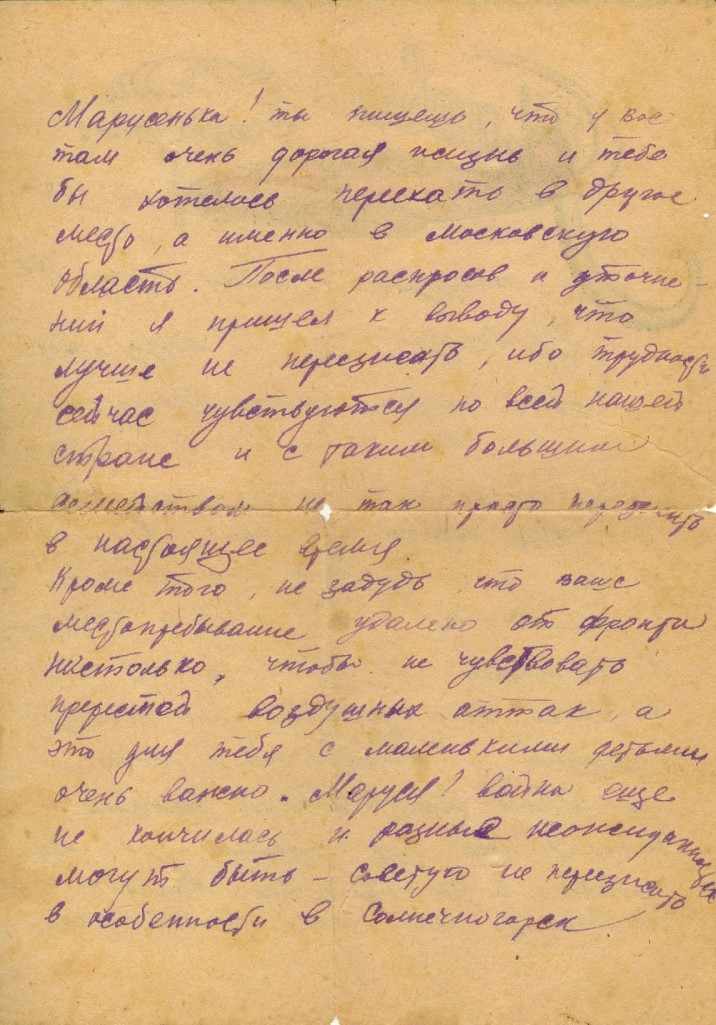 Марусенька! ты пишешь, что у вас
там очень дорогая жизнь и тебе
бы хотелось переехать в другое
место, а именно в московскую
область. После распросов и уточне-
ний я пришел к выводу, что
лучше не переезжать, ибо трудности
сейчас чувствуются по всей нашей
стране и с таким большим
семейством не так просто переехать
в настоящее время
Кроме того, не забудь, что ваше
местопребывание удалено от фронта
настолько, чтобы не чувствовать
воздушных аттак, а
это для тебя с маленькими детьми
очень важно. Маруся! война еще
не кончилась и разные неожиданности
могут быть – советую не переезжать
в особенности в Солнечногорск